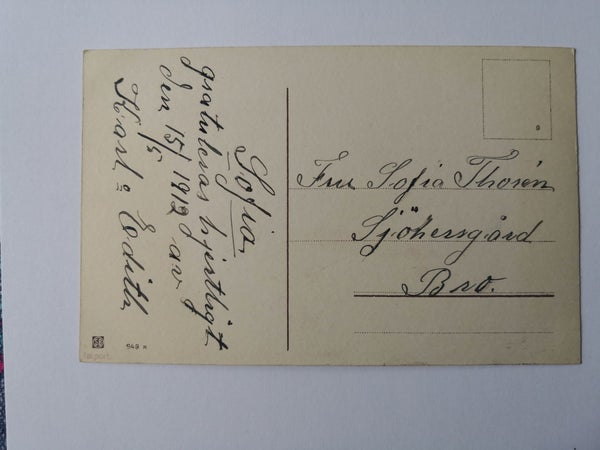 Sofia
gratuleras hjertligt
den 15/5 1912 av
Karl = Edith
Fru Sofia Thorén
Sjöhersgård
Bro.
649 H
Import.